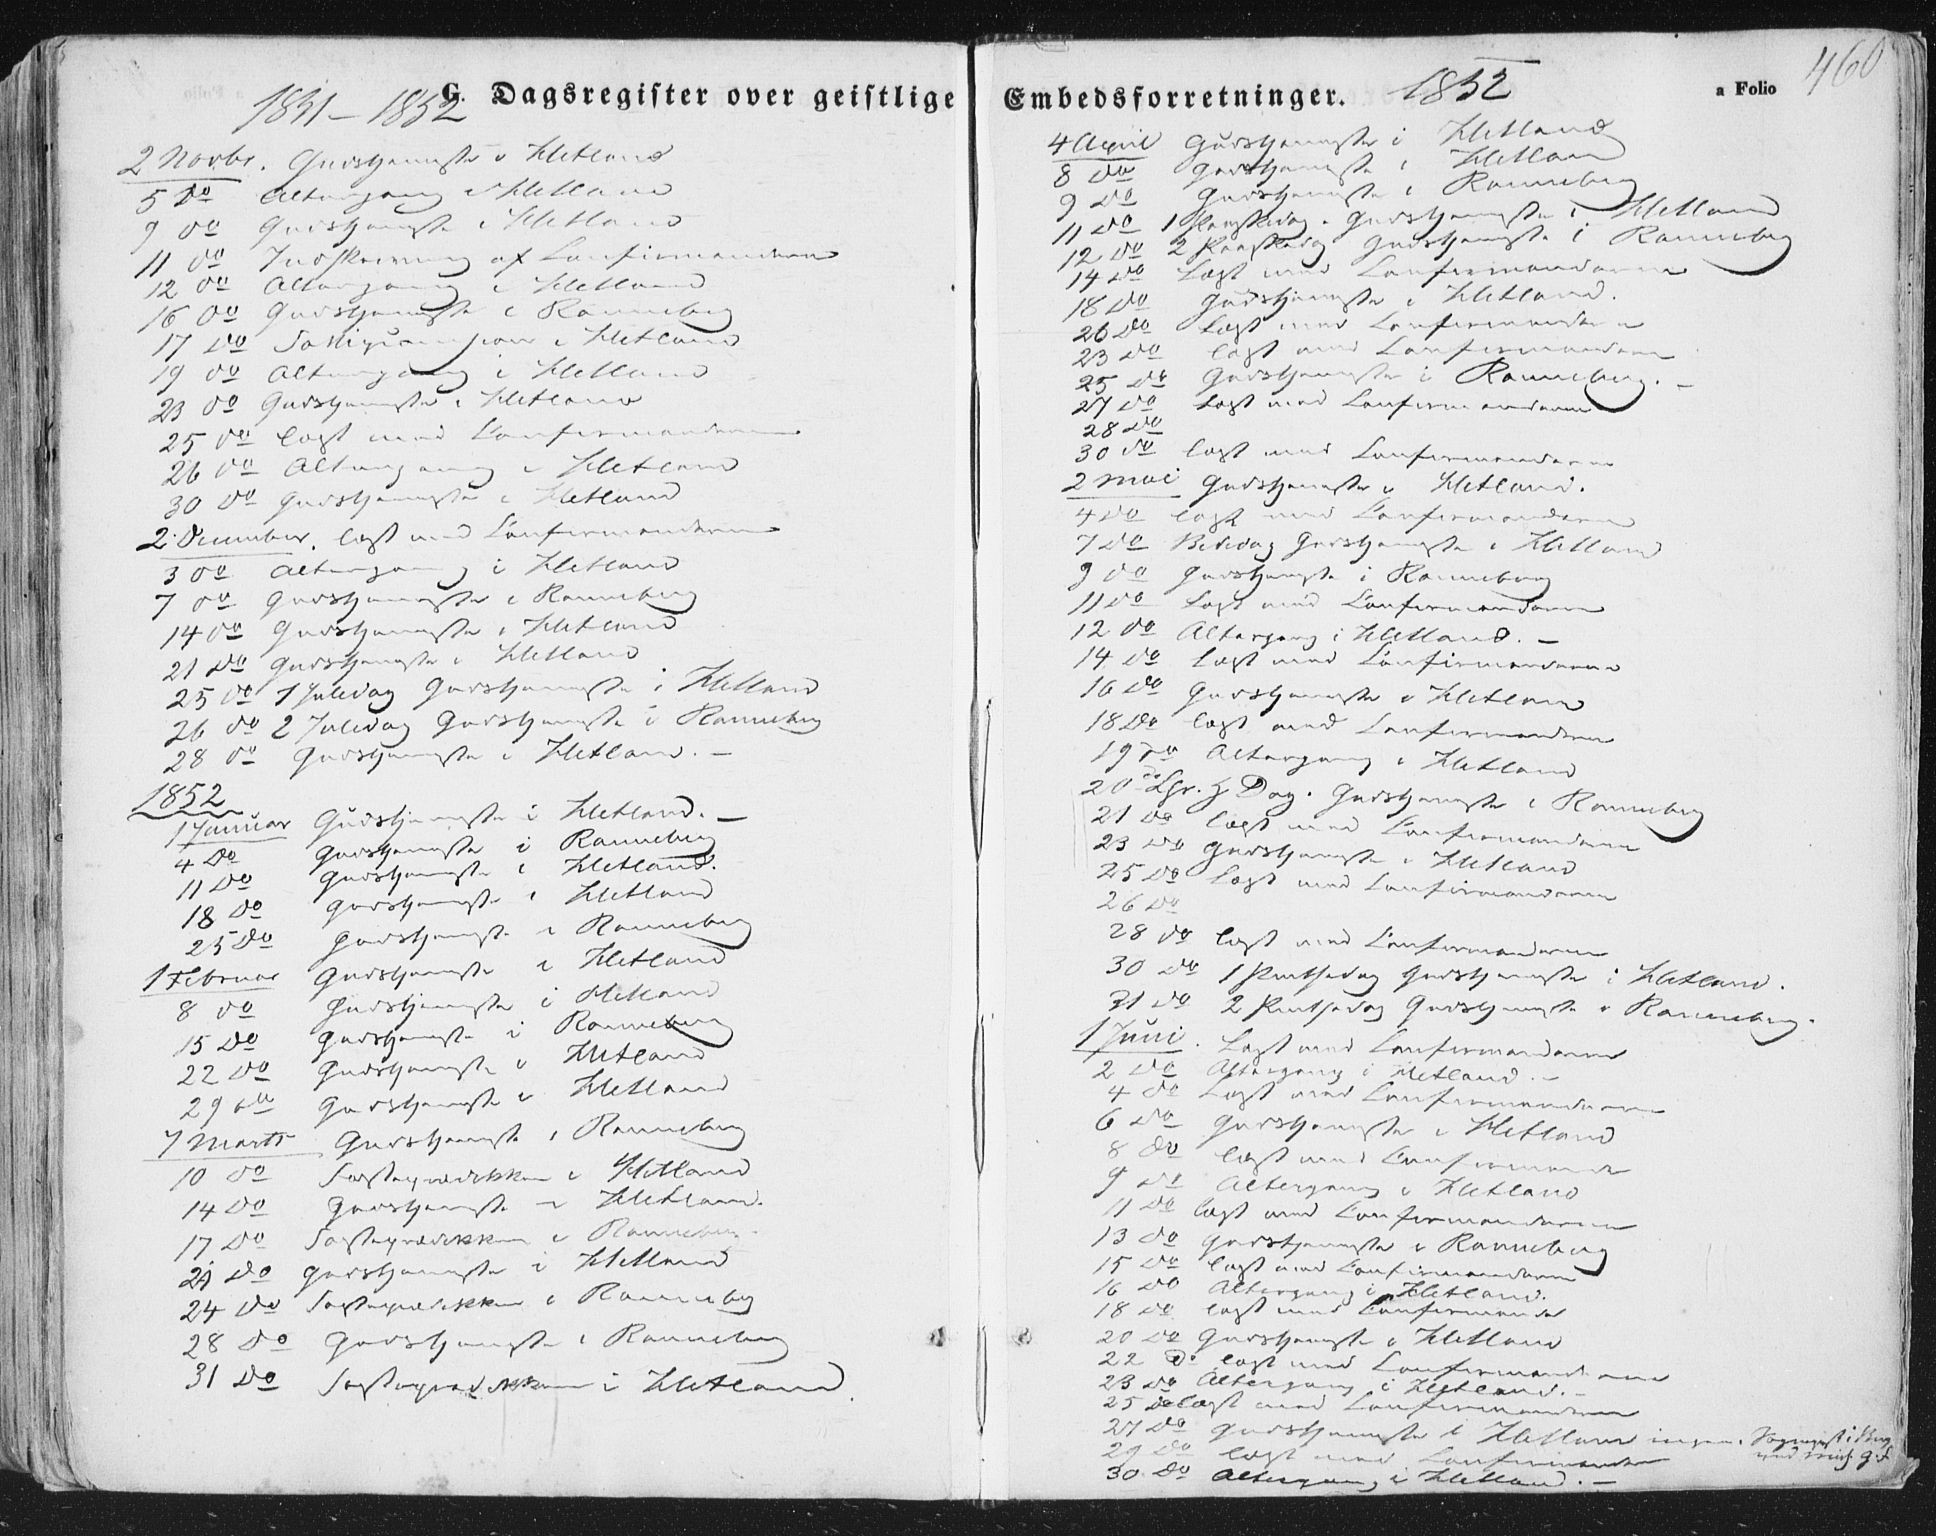 G. Dagsregister over geistlige Embedsforretninger.
1851 – 1852
1852
a Folio 460
2 Novbr. Gudstjeneste i Hetland
5 Do Altergang i Hetland
9 Do Gudstjeneste i Hetland
11 Do Indskrivning af Confirmanderne
12 Do Altergang i Hetland
16 Do Gudstjeneste i Ranneberg
17 Do i Hetland
19 Do Altergang i Hetland
23 Do Gudstjeneste i Hetland
25 Do læst med Confirmanderne
26 Do Altergang i Hetland
30 Do Gudstjeneste i Hetland
2 December. læst med Confirmanderne
3 Do Altergang i Hetland
7 Do Gudstjeneste i Ranneberg
14 Do Gudstjeneste i Hetland
21 Do Gudstjeneste i Hetland
25 Do 1 Juledag Gudstjeneste i Hetland
26 Do 2 Juledag Gudstjeneste i Ranneberg
28 Do Gudstjeneste i Hetland. –
1852
1 Januar Gudstjeneste i Hetland. –
4 Do Gudstjeneste i Ranneberg
11 Do Gudstjeneste i Hetland.
18 Do Gudstjeneste i Hetland
25 Do Gudstjeneste i Ranneberg
1 Februar Gudstjeneste i Hetland
8 Do Gudstjeneste i Hetland
15 Do Gudstjeneste i Ranneberg
22 Do Gudstjeneste i Hetland
29 Do Gudstjeneste i Hetland
7 Marts Gudstjeneste i Ranneberg
10 Do Fasteprædikken i Hetland
14 Do Gudstjeneste i Hetland.
17 Do Fasteprædikken i Ranneberg
21 Do Gudstjeneste i Hetland
24 Do Fasteprædikken i Ranneberg
28 Do Gudstjeneste i Ranneberg
31 Do Fasteprædikken i Hetland.
4 April Gudstjeneste i Hetland
8 Do Gudstjeneste i Hetland
9 Do Gudstjeneste i Ranneberg
11 Do 1 Paaskedag. Gudstjeneste i Hetland
12 Do 2 Paaskedag Gudstjeneste i Ranneberg
14 Do Læst med Confirmanderne
18 Do Gudstjeneste i Hetland.
20 Do Læst med Confirmanderne
23 Do læst med Confirmanderne
25 Do Gudstjeneste i Ranneberg. –
27 Do Læst med Confirmanderne
28 Do
30 Do læst med Confirmanderne
2 Mai Gudstjeneste i Hetland.
4 Do læst med Confirmanderne
7 Do Bededag Gudstjeneste i Hetland
9 Do Gudstjeneste i Ranneberg
11 Do Læst med Confirmanderne
12 Do Altergang i Hetland. –
14 Do Læst med Confirmanderne
16 Do Gudstjeneste i Hetland
18 Do læst med Confirmanderne
19 Do Altergang i Hetland
20 Do Chr. H Dag. Gudstjeneste i Ranneberg
21 Do læst med Confirmanderne
23 Do Gudstjeneste i Hetland
25 Do Læst med Confirmanderne
26 Do
28 Do læst med Confirmanderne
30 Do 1 Pintsedag Gudstjeneste i Hetland.
31 Do 2 Pintsedag Gudstjeneste i Ranneberg.
1 Juni. Læst med Confirmanderne
2 Do Altergang i Hetland. –
4 Do Læst med Confirmanderne
6 Do Gudstjeneste i Hetland
8 Do læst med Confirmande
9 Do Altergang i Hetland
11 Do læst med Confirmanderne
13 Do Gudstjeneste i Ranneberg
15 Do læst med Confirmanderne
16 Do Altergang i Hetland.
18 Do læst med Confirmande
20 Do Gudstjeneste i Hetland
22 Do læst med Confirmanderne
23 Do Altergang i Hetland. –
25 Do læst med Confirmanderne
27 Do Gudstjeneste i Hetland
29 Do læst med Confirmande
30 Do Altergang i Hetland. –